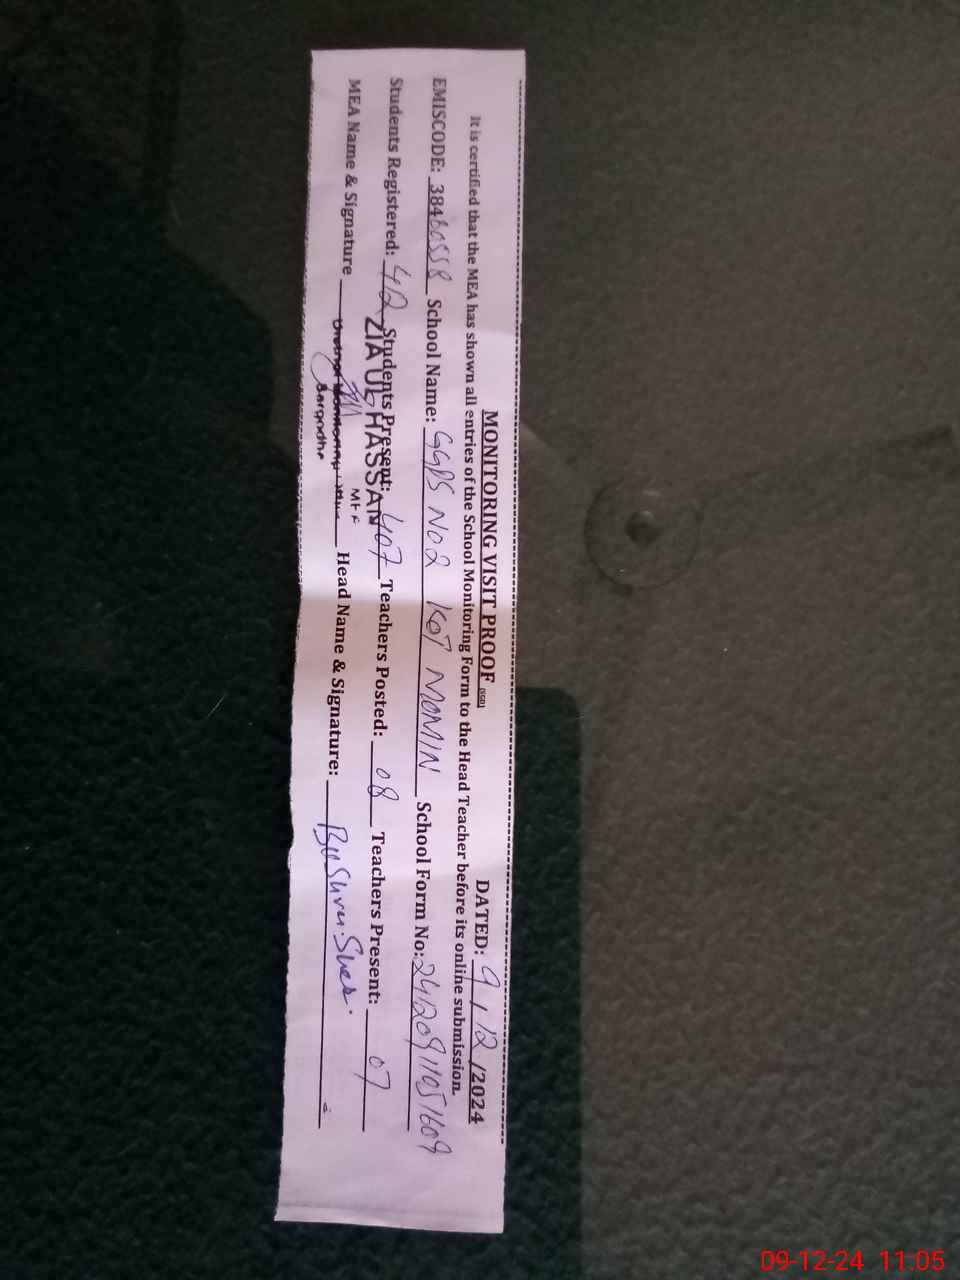 MONITORING VISIT PROOF DATED: 9 / 12 /2024
It is certified that the MEA has shown all entries of the School Monitoring Form to the Head Teacher before its online submission.
EMISCODE: 38460558 School Name: GGPS No2 KOT MOMIN School Form No: 24120911051609
Students Registered: 412 Students Present: 407 Teachers Posted: 08 Teachers Present: 07
ZIA UL HASSAN
MEA Name & Signature Head Name & Signature:
Sargodha
09-12-24 11.05